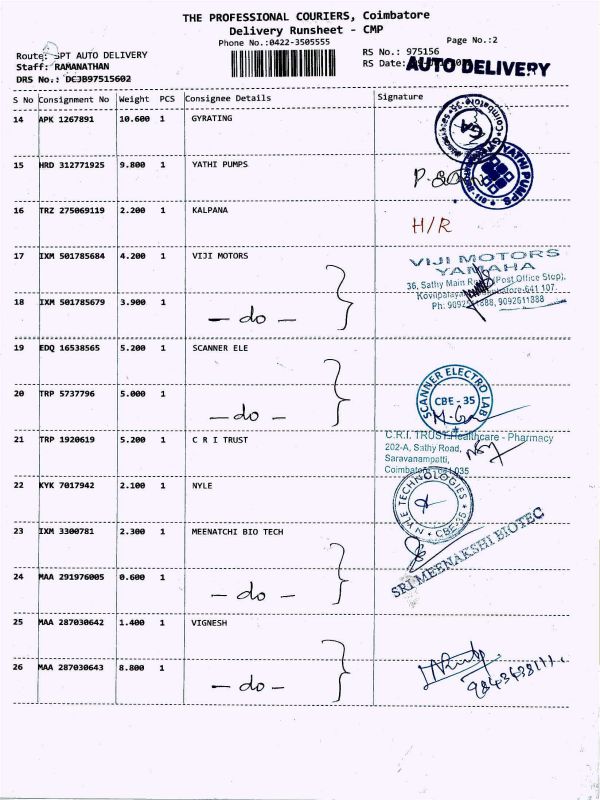 THE PROFESSIONAL COURIERS, Coimbatore
Delivery Runsheet - CMP
Phone No.:0422-3505555
Page No.:2
Route: SPT AUTO DELIVERY
Staff: RAMANATHAN
DRS No.: DEJB97515602
RS No.: 975156
RS Date:
AUTO DELIVERY
S No Consignment No Weight PCS Consignee Details Signature
14 APK 1267891 10.600 1 GYRATING
15 HRD 312771925 9.800 1 YATHI PUMPS
YATHI PUMPS
16 TRZ 275069119 2.200 1 KALPANA H/R
17 IXM 501785684 4.200 1 VIJI MOTORS
VIJI MOTORS
YAMAHA
36, Sathy Main Road (Post Office Stop),
641 107.
18 IXM 501785679 3.900 1 - do -
Ph: 9092511888, 9092611888
19 EDQ 16538565 5.200 1 SCANNER ELE
20 TRP 5737796 5.000 1 - do -
SCANNER ELECTRO LAB
CBE - 35
21 TRP 1920619 5.200 1 C R I TRUST
C.R.I. TRUST Healthcare - Pharmacy
202-A, Sathy Road,
Saravanampatti,
Coimbatore - 641 035
22 KYK 7017942 2.100 1 NYLE
NYLE TECHNOLOGIES
CBE-35
23 IXM 3300781 2.300 1 MEENATCHI BIO TECH
SRI MEENAKSHI BIOTEC
24 MAA 291976005 0.600 1 - do -
25 MAA 287030642 1.400 1 VIGNESH
26 MAA 287030643 8.800 1 - do -